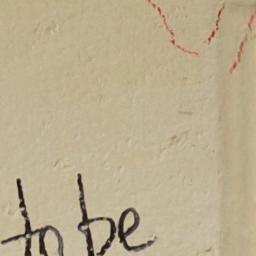 to be